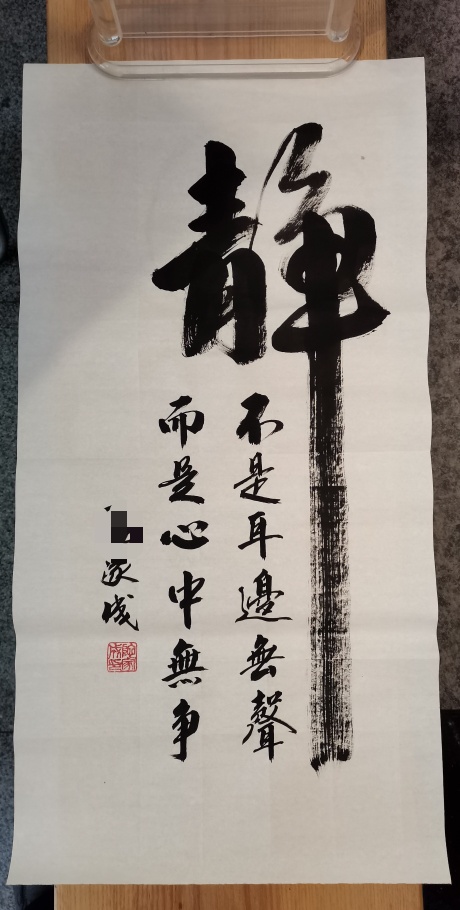 静
不是耳邊無聲
而是心中無争